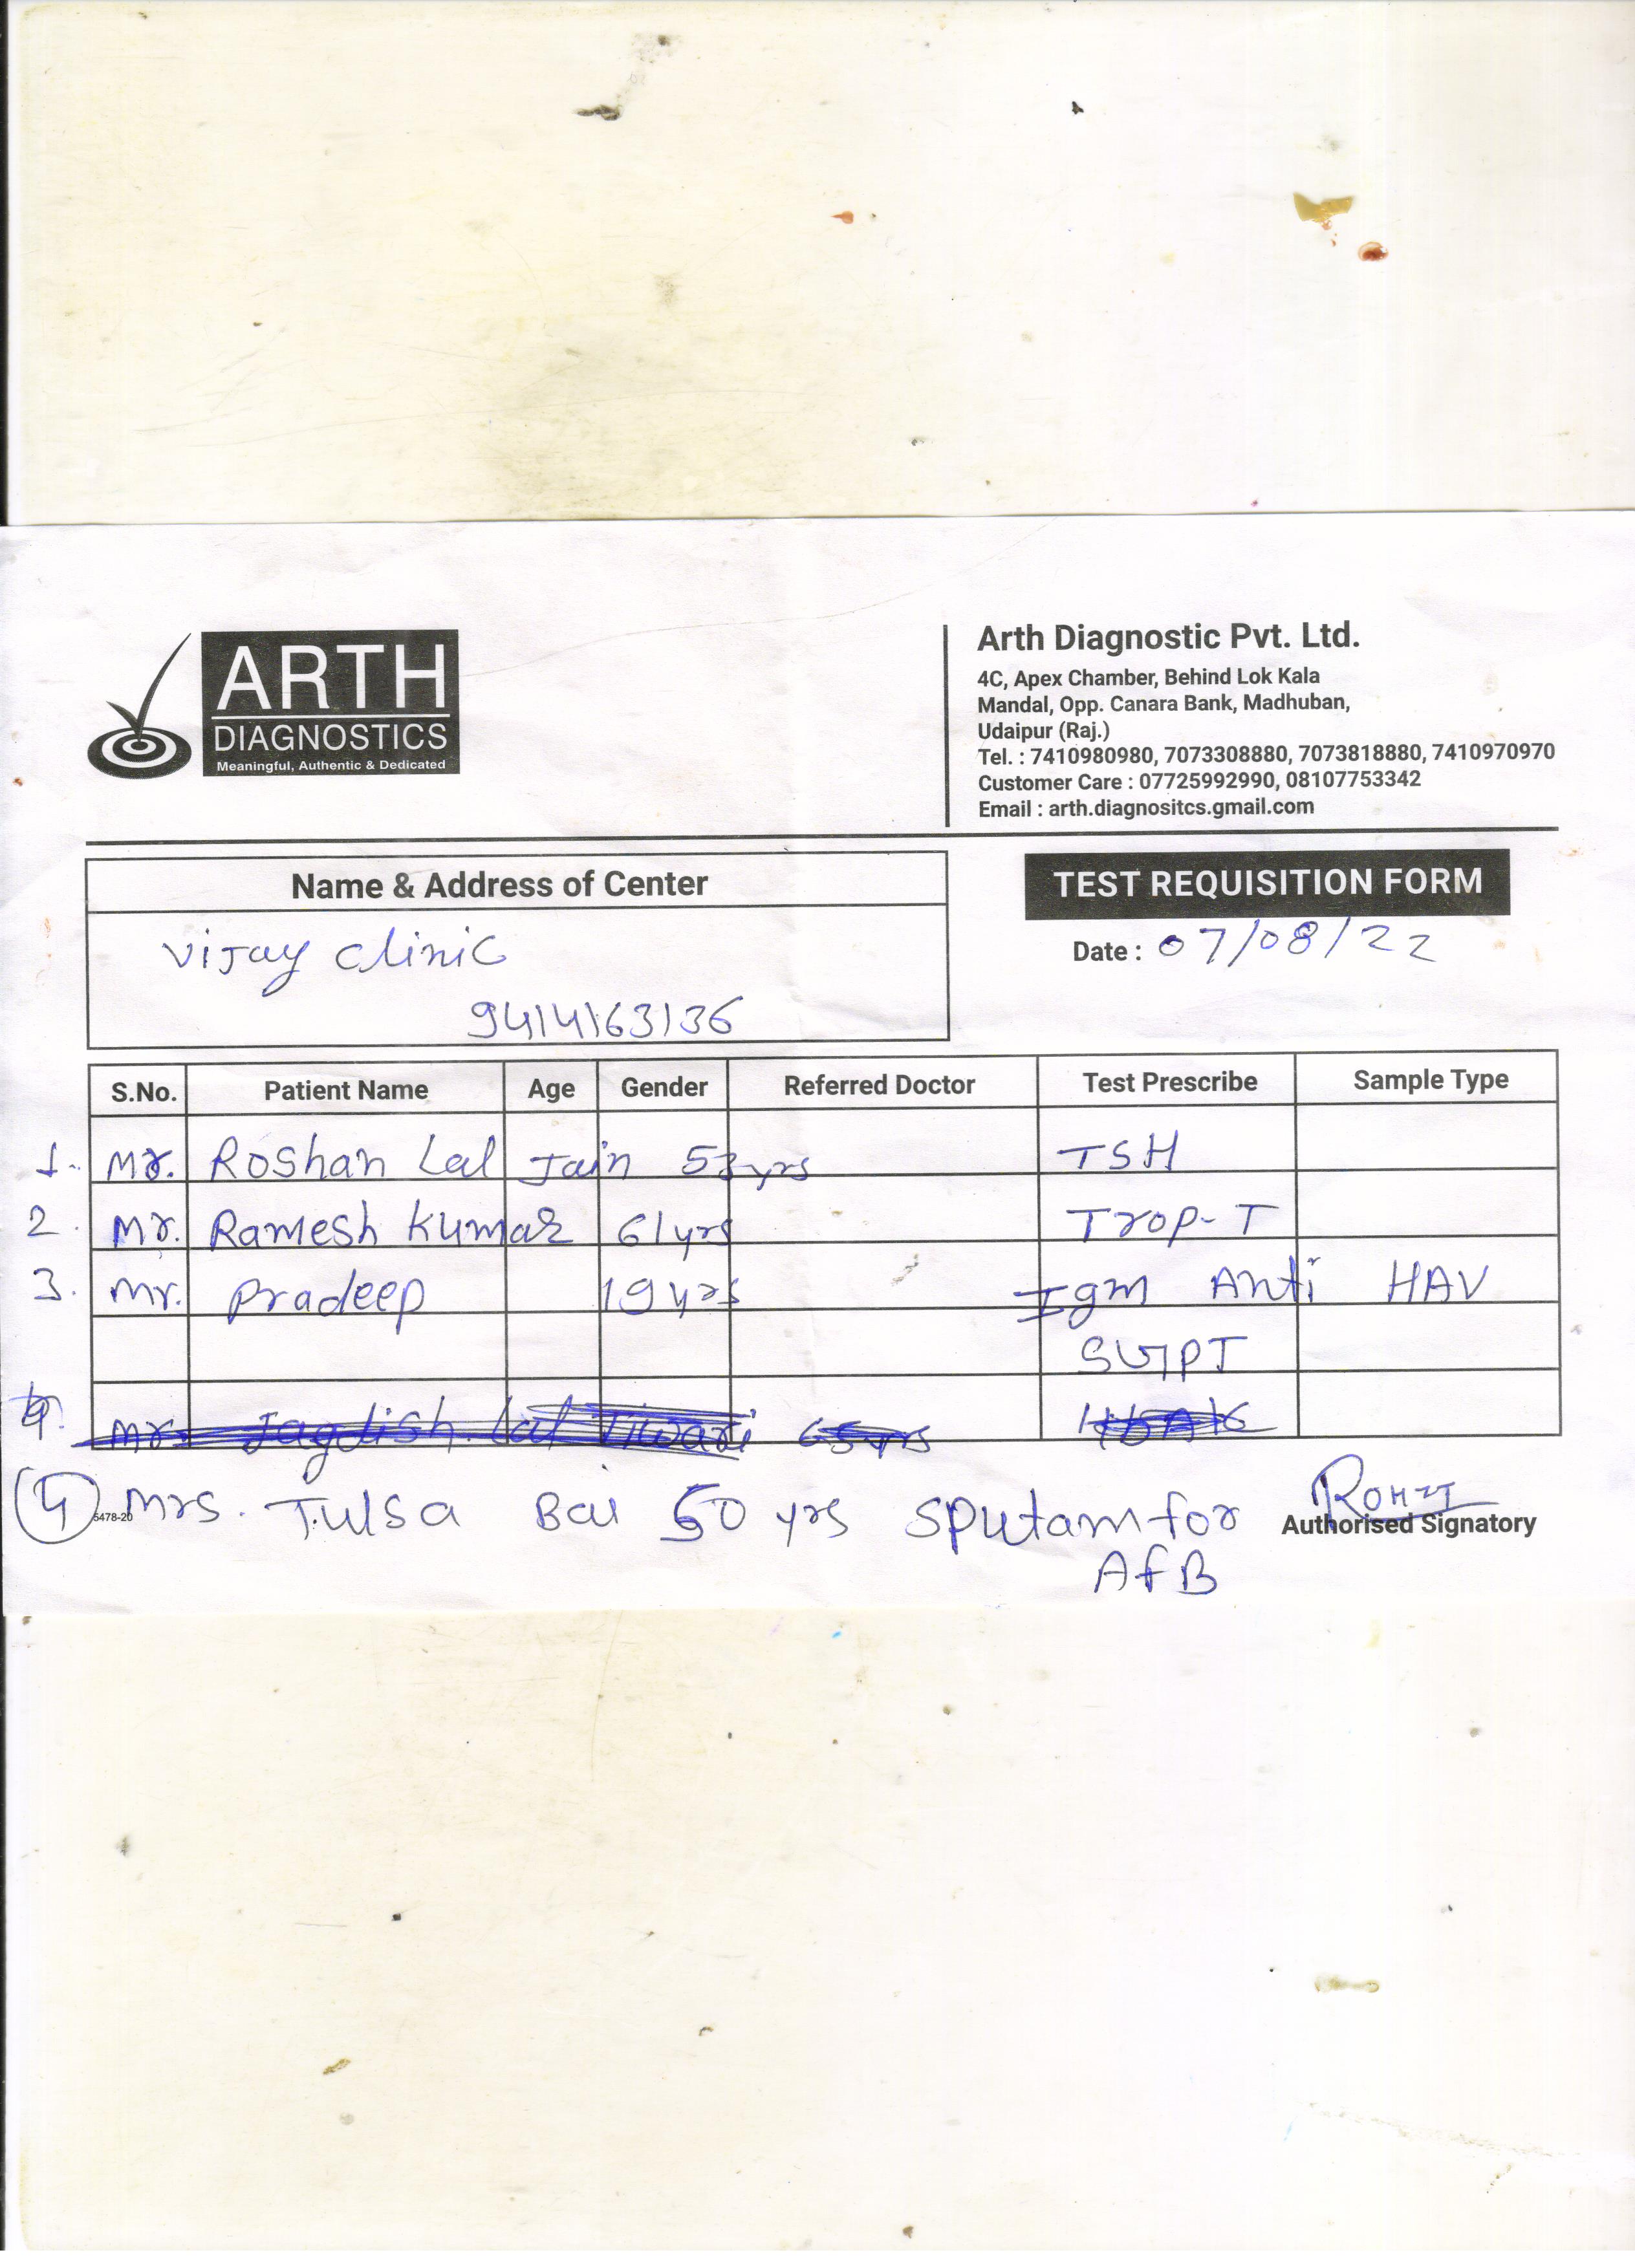 ARTH
DIAGNOSTICS
Meaningful, Authentic & Dedicated
Arth Diagnostic Pvt. Ltd.
4C, Apex Chamber, Behind Lok Kala
Mandal, Opp. Canara Bank, Madhuban,
Udaipur (Raj.)
Tel. : 7410980980, 7073308880, 7073818880, 7410970970
Customer Care : 07725992990, 08107753342
Email : arth.diagnositcs.gmail.com
Name & Address of Center
TEST REQUISITION FORM
Vijay Clinic
Date : 07/08/22
9414163136
S.No. Patient Name Age Gender Referred Doctor Test Prescribe Sample Type
1. Mr. Roshan Lal Jain 53 yrs TSH
2. Mr. Ramesh Kumar 61 yrs Trop-T
3. Mr. Pradeep 19 yrs Igm Anti HAV
SGPT
4. Mr. Jagdish Lal Tiwari 65 yrs
4 Mrs. Tulsa Bai 50 yrs Sputam for
AfB
5478-20
Authorised Signatory